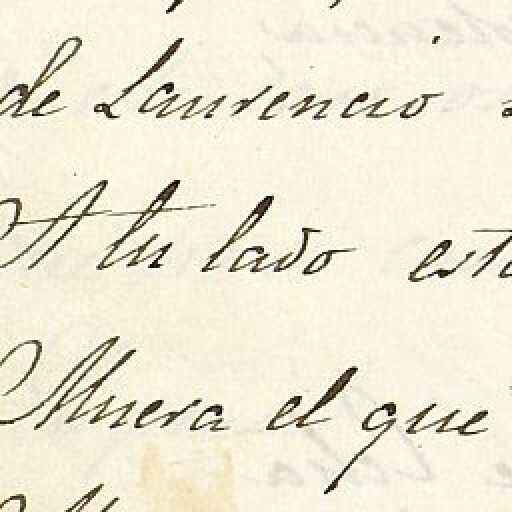 de Laurencio
A tu lado
Muera el que